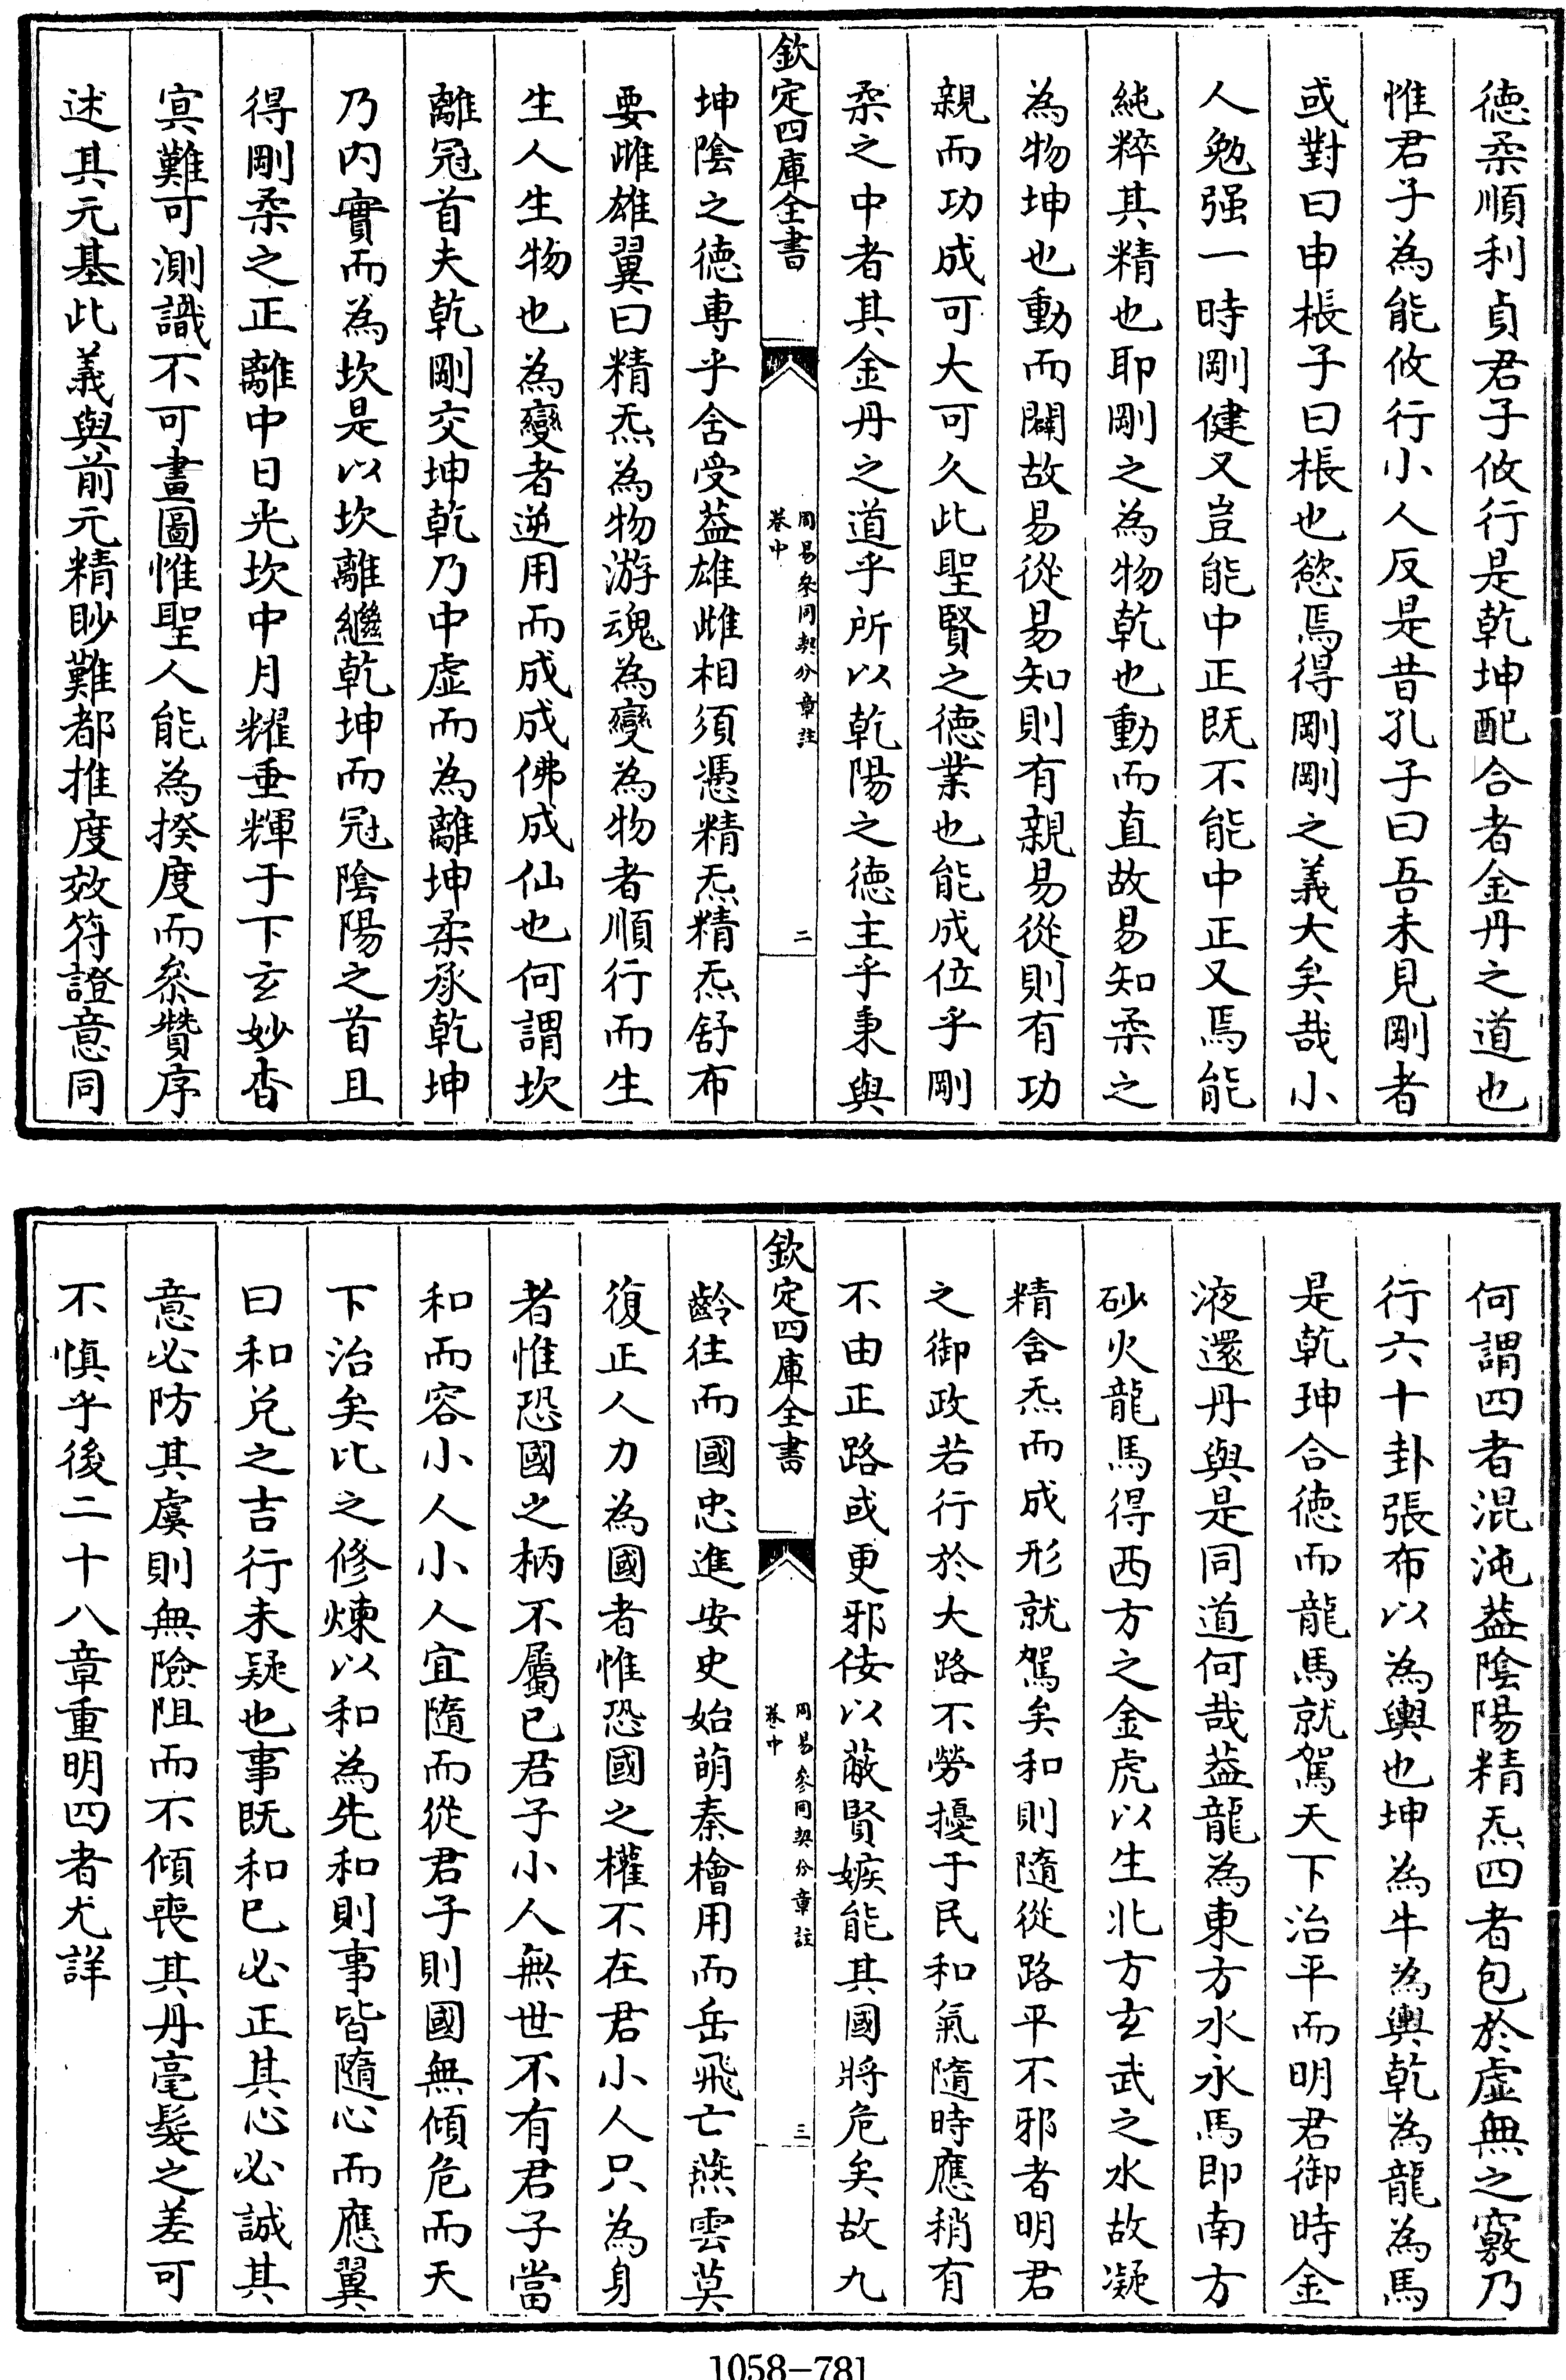 德柔順利貞君子攸行是乾坤配合者金丹之道也
惟君子為能攸行小人反是昔孔子曰吾未見剛者
或對曰申棖子曰棖也慾焉得剛剛之義大矣哉小
人勉强一時剛健又豈能中正既不能中正又焉能
純粹其精也耶剛之為物乾也動而直故易知柔之
為物坤也動而闢故易從易知則有親易從則有功
親而功成可大可久此聖賢之徳業也能成位乎剛
柔之中者其金丹之道乎所以乾陽之徳主乎秉與
欽定四庫全書
周易參同契分章註
卷中
二
坤陰之徳專乎舍受葢雄雌相須憑精炁精炁舒布
要雌雄翼曰精炁為物游魂為變為物者順行而生
生人生物也為變者逆用而成成佛成仙也何謂坎
離冠首夫乾剛交坤乾乃中虛而為離坤柔承乾坤
乃内實而為坎是以坎離繼乾坤而冠陰陽之首且
得剛柔之正離中日光坎中月耀垂輝于下玄妙杳
㝠難可測識不可畫圖惟聖人能為揆度而叅贊序
述其元基此義與前元精眇難都推度效符證意同
何謂四者混沌葢陰陽精炁四者包於虛無之竅乃
行六十卦張布以為輿也坤為牛為輿乾為龍為馬
是乾坤合徳而龍馬就駕天下治平而明君御時金
液還丹與是同道何哉葢龍為東方水永馬即南方
砂火龍馬得西方之金虎以生北方玄武之水故凝
精舍炁而成形就駕矣和則隨從路平不邪者明君
之御政若行於大路不勞擾于民和氣隨時應稍有
不由正路或更邪佞以蔽賢嫉能其國將危矣故九
欽定四庫全書
周易參同契分章註
卷中
三
齡往而國忠進安史始萌秦檜用而岳飛亡燕雲莫
復正人力為國者惟恐國之權不在君小人只為身
者惟恐國之柄不屬已君子小人無世不有君子當
和而容小人小人宜隨而從君子則國無傾危而天
下治矣比之修煉以和為先和則事皆隨心而應翼
曰和兑之吉行未疑也事既和已必正其心必誠其
意必防其虞則無險阻而不傾喪其丹毫髮之差可
不慎乎後二十八章重明四者尤詳
1058-781